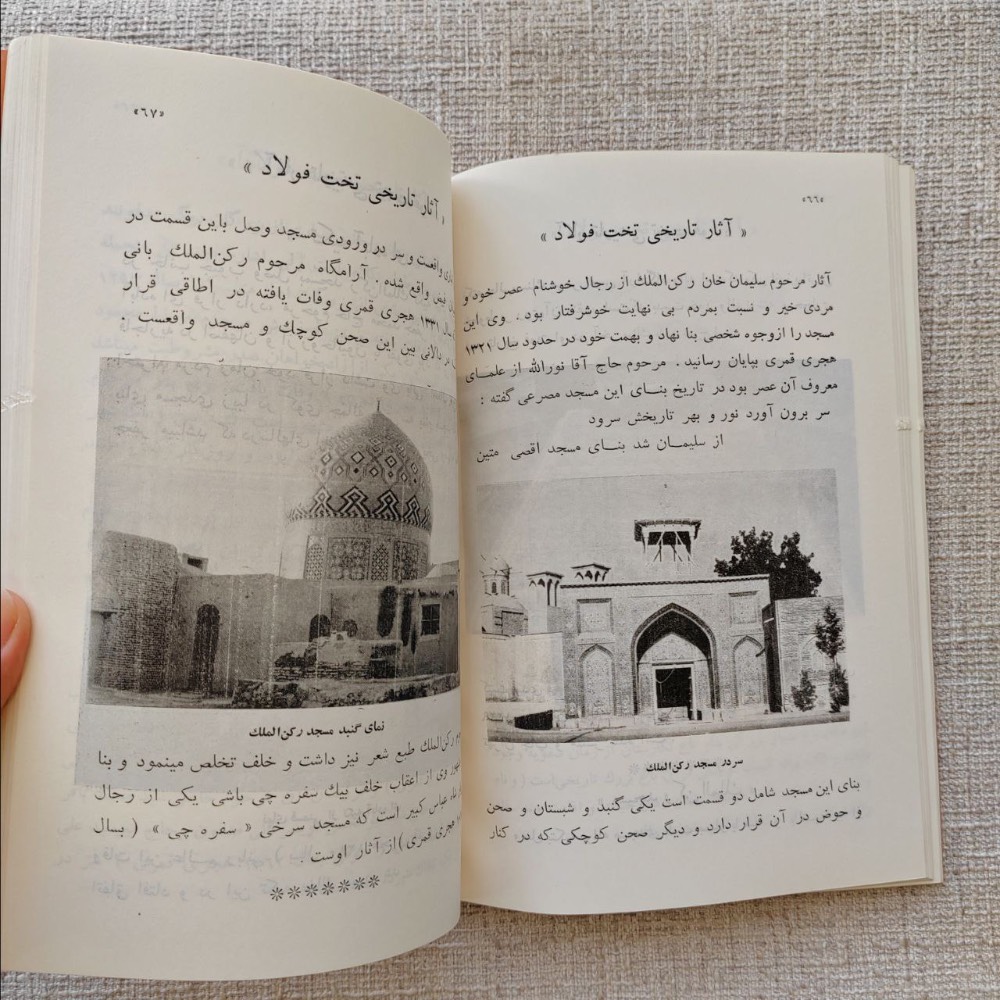 «٦٦»
« آثار تاریخی تخت فولاد »
آثار مرحوم سلیمان خان رکن‌الملك از رجال خوشنام عصر خود و
مردی خیر و نسبت بمردم بی نهایت خوشرفتار بود . وی این
مسجد را ازوجوه شخصی بنا نهاد و بهمت خود در حدود سال ۱۳۲۱
هجری قمری بپایان رسانید . مرحوم حاج آقا نورالله از علمـای
معروف آن عصر بود در تاریخ بنـای این مسجد مصرعی گفته :
سر برون آورد نور و بهر تاریخش سرود
از سلیمان شد بنـای مسجد اقصی متین
سردر مسجد رکن‌الملك
بنای این مسجد شامل دو قسمت است یکی گنبد و شبستان و صحن
و حوض در آن قرار دارد و دیگر صحن کوچکی که در کنار
«٦٧»
« آثار تاریخی تخت فولاد »
واقعست و سر در ورودی مسجد وصل باین قسمت در
واقع شده . آرامگاه مرحوم رکن‌الملك بانی
۱۳۳۱ هجری قمری وفات یافته در اطاقی قرار
دالانی بین این صحن کوچك و مسجد واقعست .
نمای گنبد مسجد رکن‌الملك
رکن‌الملك طبع شعر نیز داشت و خلف تخلص مینمود و بنا
وی از اعقاب خلف بیك سفره چی باشی یکی از رجال
عباس کبیر است که مسجد سرخی « سفره چی » ( بسال
هجری قمری ) از آثار اوست .